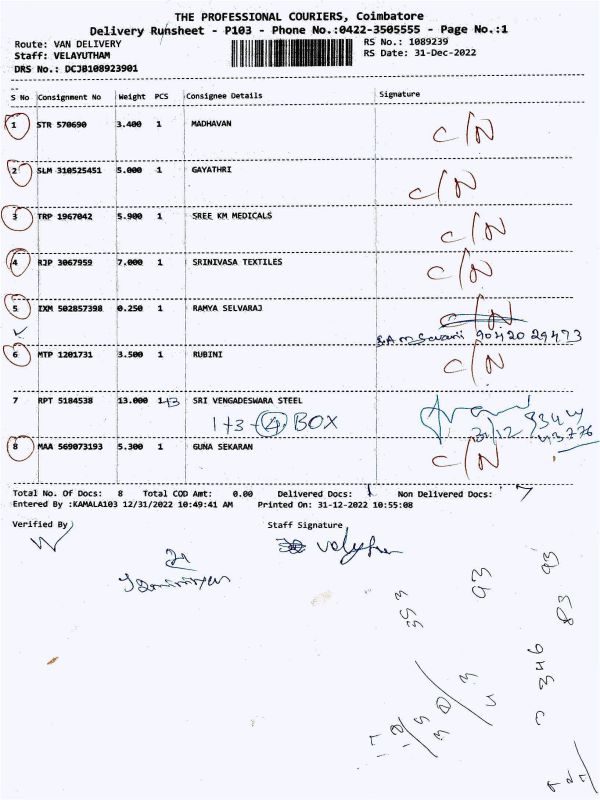 THE PROFESSIONAL COURIERS, Coimbatore
Delivery Runsheet - P103 - Phone No.:0422-3505555 - Page No.:1
Route: VAN DELIVERY RS No.: 1089239
Staff: VELAYUTHAM RS Date: 31-Dec-2022
DRS No.: DCJB108923901
S No Consignment No Weight PCS Consignee Details Signature
1 STR 570690 3.400 1 MADHAVAN C/N
2 SLM 310525451 5.000 1 GAYATHRI C/N
3 TRP 1967042 5.900 1 SREE KM MEDICALS C/N
4 RJP 3067959 7.000 1 SRINIVASA TEXTILES C/N
5 IXM 502857398 0.250 1 RAMYA SELVARAJ C/N
90420 29473
6 MTP 1201731 3.500 1 RUBINI C/N
7 RPT 5184538 13.000 1+3 SRI VENGADESWARA STEEL
1+3-4 BOX 31/12
8 MAA 569073193 5.300 1 GUNA SEKARAN C/N
Total No. Of Docs: 8 Total COD Amt: 0.00 Delivered Docs: 1 Non Delivered Docs: 7
Entered By :KAMALA103 12/31/2022 10:49:41 AM Printed On: 31-12-2022 10:55:08
Verified By Staff Signature